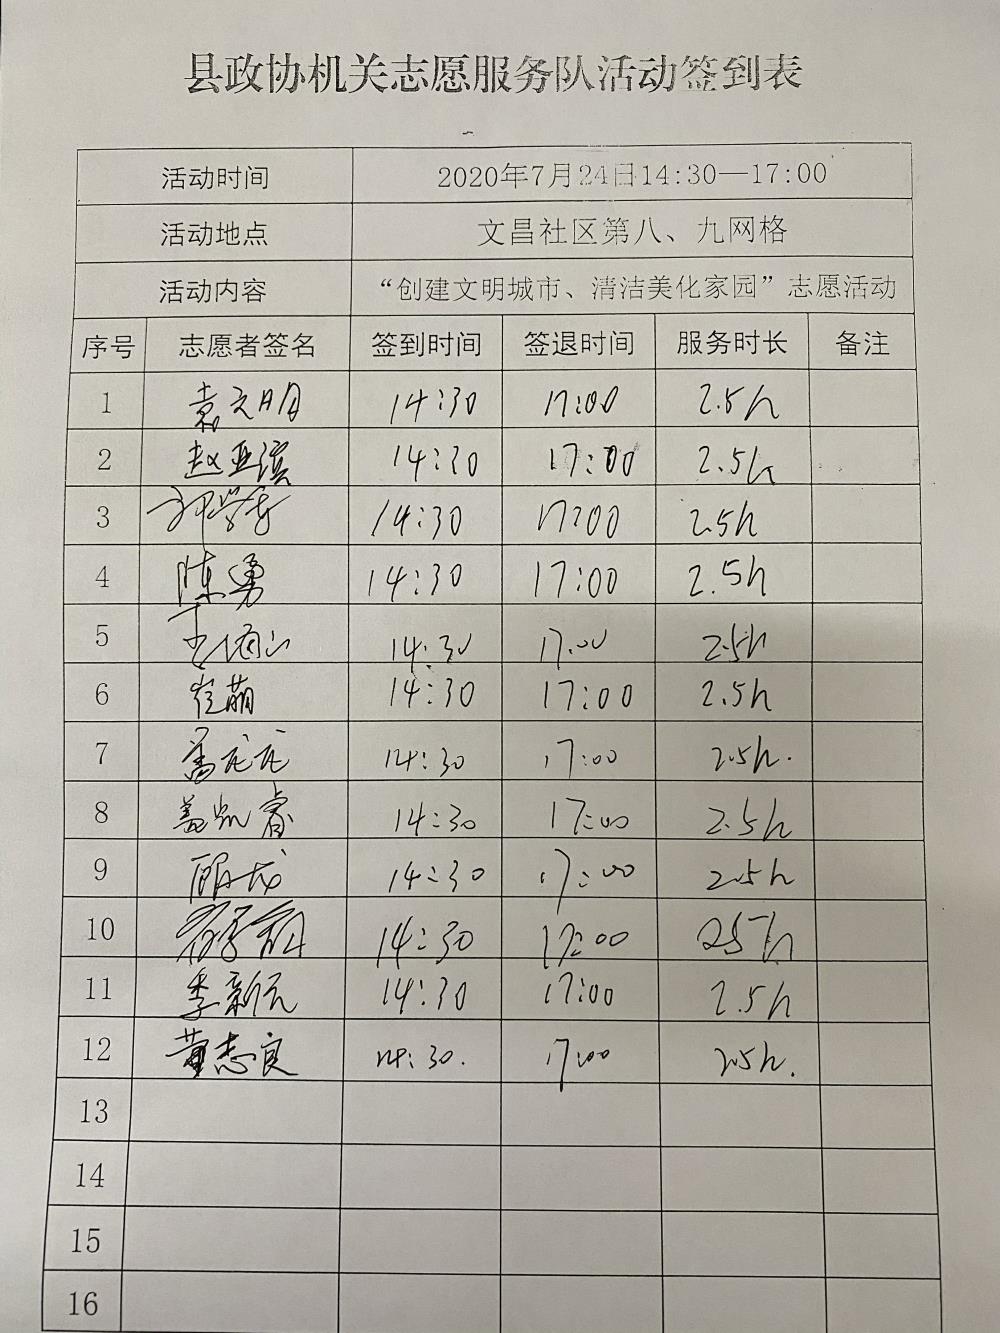 县政协机关志愿服务队活动签到表
活动时间 2020年7月24日14:30—17:00
活动地点 文昌社区第八、九网格
活动内容 “创建文明城市、清洁美化家园”志愿活动
序号 志愿者签名 签到时间 签退时间 服务时长 备注
1 袁文明 14:30 17:00 2.5h
2 赵亚滨 14:30 17:00 2.5h
3 14:30 17:00 2.5h
4 陈勇 14:30 17:00 2.5h
5 14:30 17:00 2.5h
6 崔萌 14:30 17:00 2.5h
7 龙龙 14:30 17:00 2.5h.
8 盖凯睿 14:30 17:00 2.5h
9 14:30 17:00 2.5h
10 14:30 17:00 2.5h
11 季新元 14:30 17:00 2.5h
12 黄志良 14:30. 17:00 2.5h.
13
14
15
16